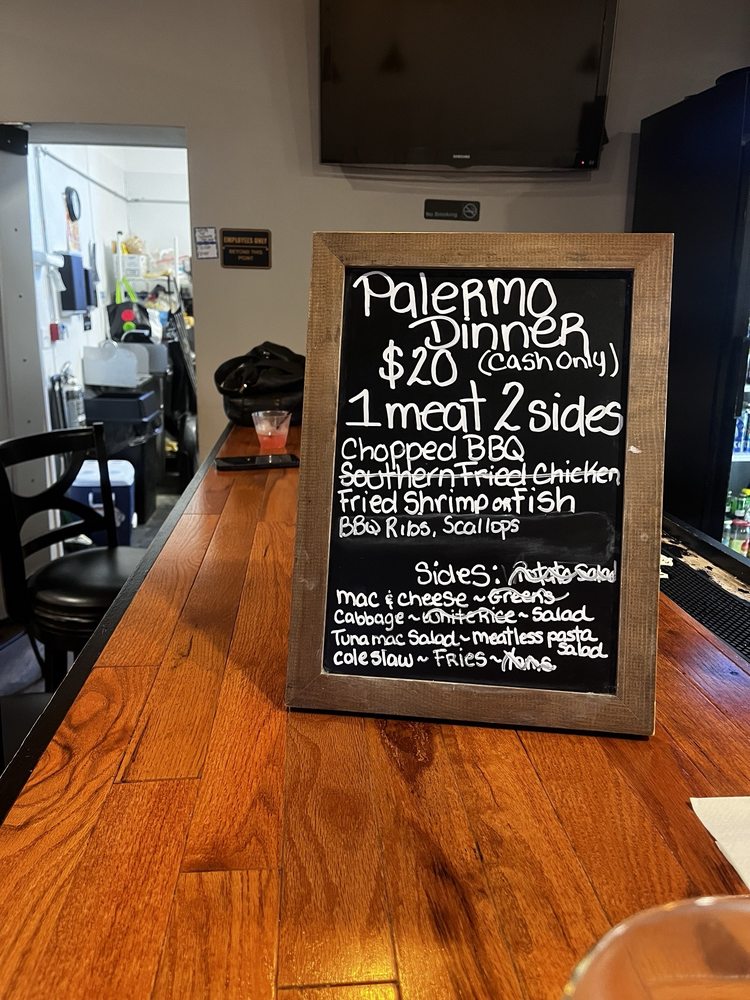 SAMSUNG
No Smoking
EMPLOYEES ONLY
BEYOND THIS
POINT
Palermo
Dinner
$20 (Cash Only)
1 meat 2 sides
Chopped BBQ
Southern Fried Chicken
Fried Shrimp or Fish
BBQ Ribs, Scallops
Sides: Potato Salad
mac & cheese ~ Greens
Cabbage ~ White Rice ~ Salad
Tuna mac Salad ~ meatless pasta
salad
coleslaw ~ Fries ~ Yams